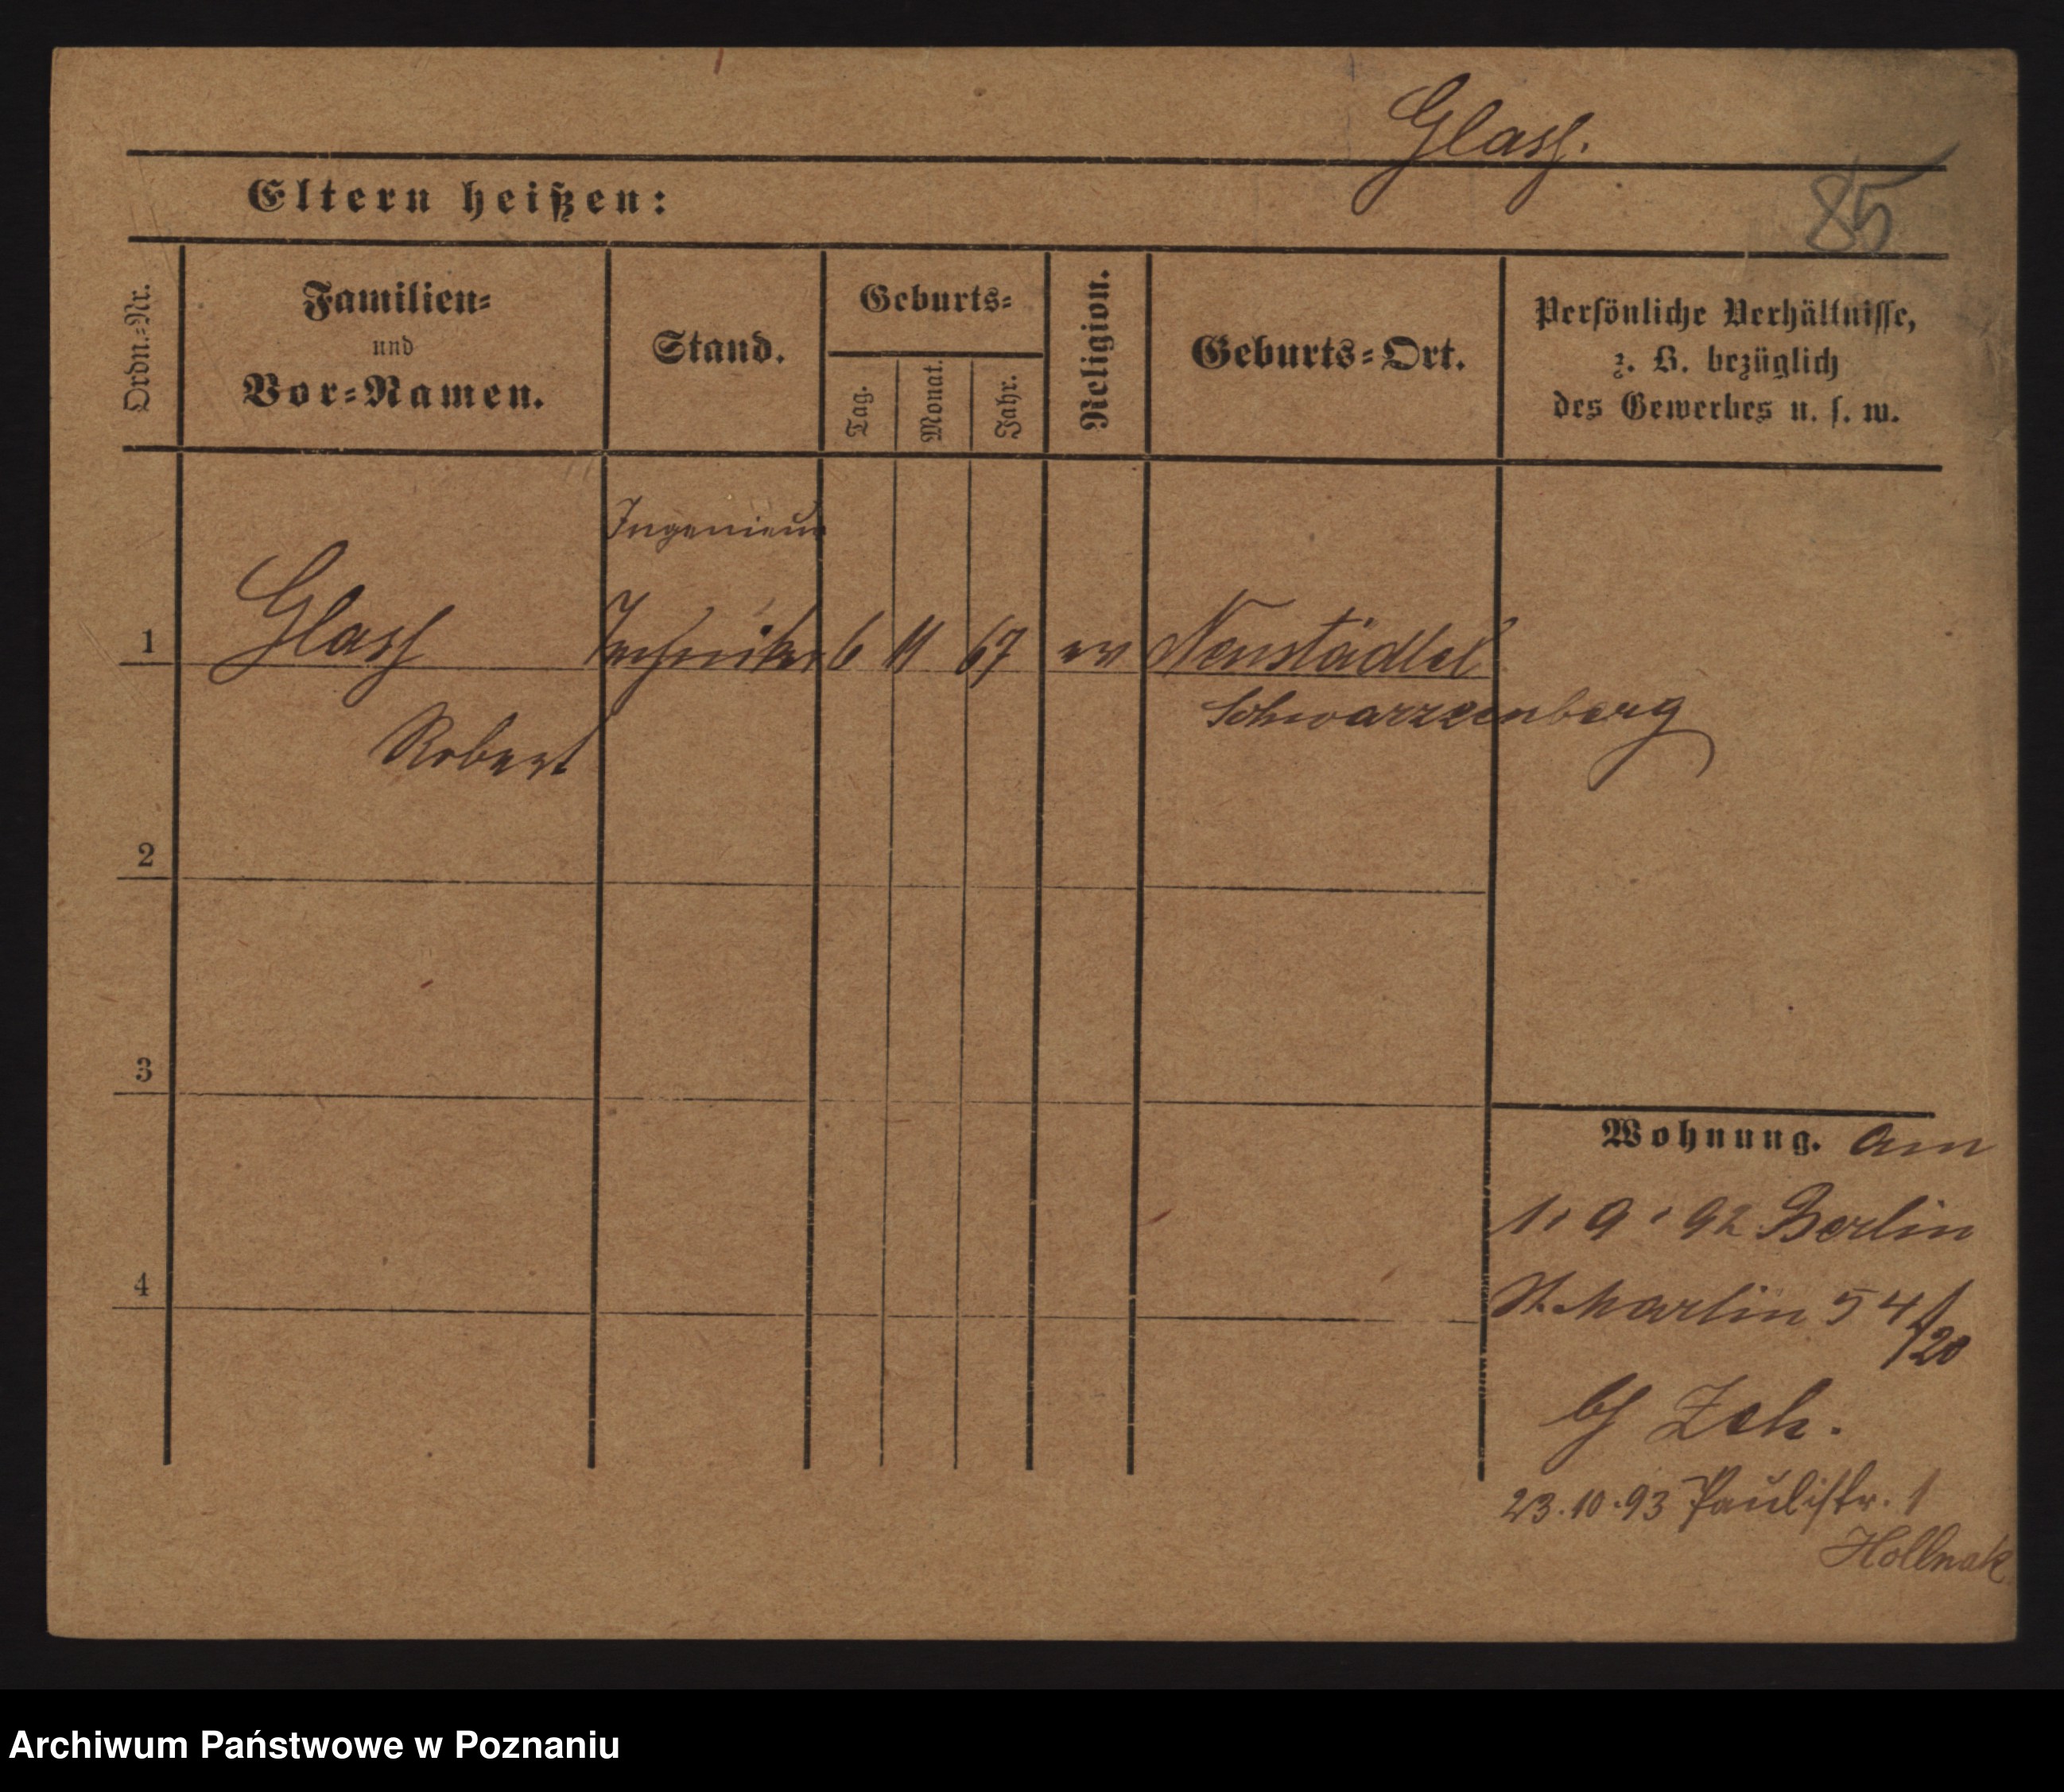 Glass.
85
Eltern heißen:
Ordn.=Nr.
Familien=
und
Vor=Namen.
Stand.
Geburts=
Tag.
Monat.
Jahr.
Religion.
Geburts=Ort.
Persönliche Verhältnisse,
z. B. bezüglich
des Gewerbes u. s. w.
Ingenieur
1 Glass Techniker 6 11 67 ev Neustädtel
Schwarzenberg
Robert
2
3
4
Wohnung. am
1. 9. 92 Berlin
St. Martin 54/20
bei Zeh.
23.10.93 Paulistr. 1
Archiwum Państwowe w Poznaniu